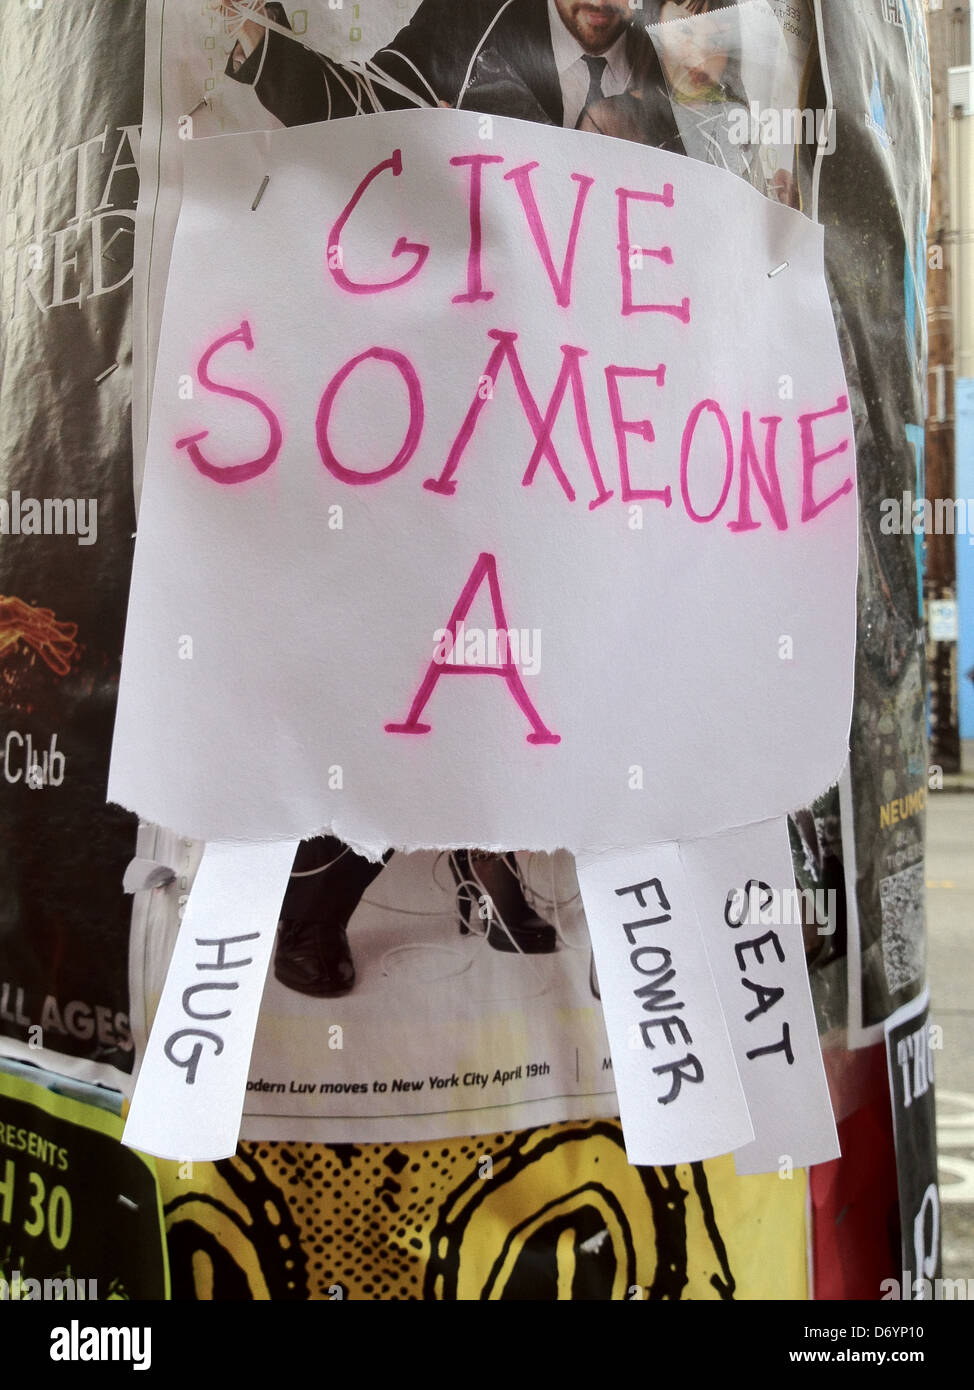 GIVE
SOMEONE
A
HUG
FLOWER
SEAT
Club
LL AGES
odern Luv moves to New York City April 19th
M
NEUMO
RESENTS
H 30
TA
RED
alamy
Image ID: D6YP10
www.alamy.com